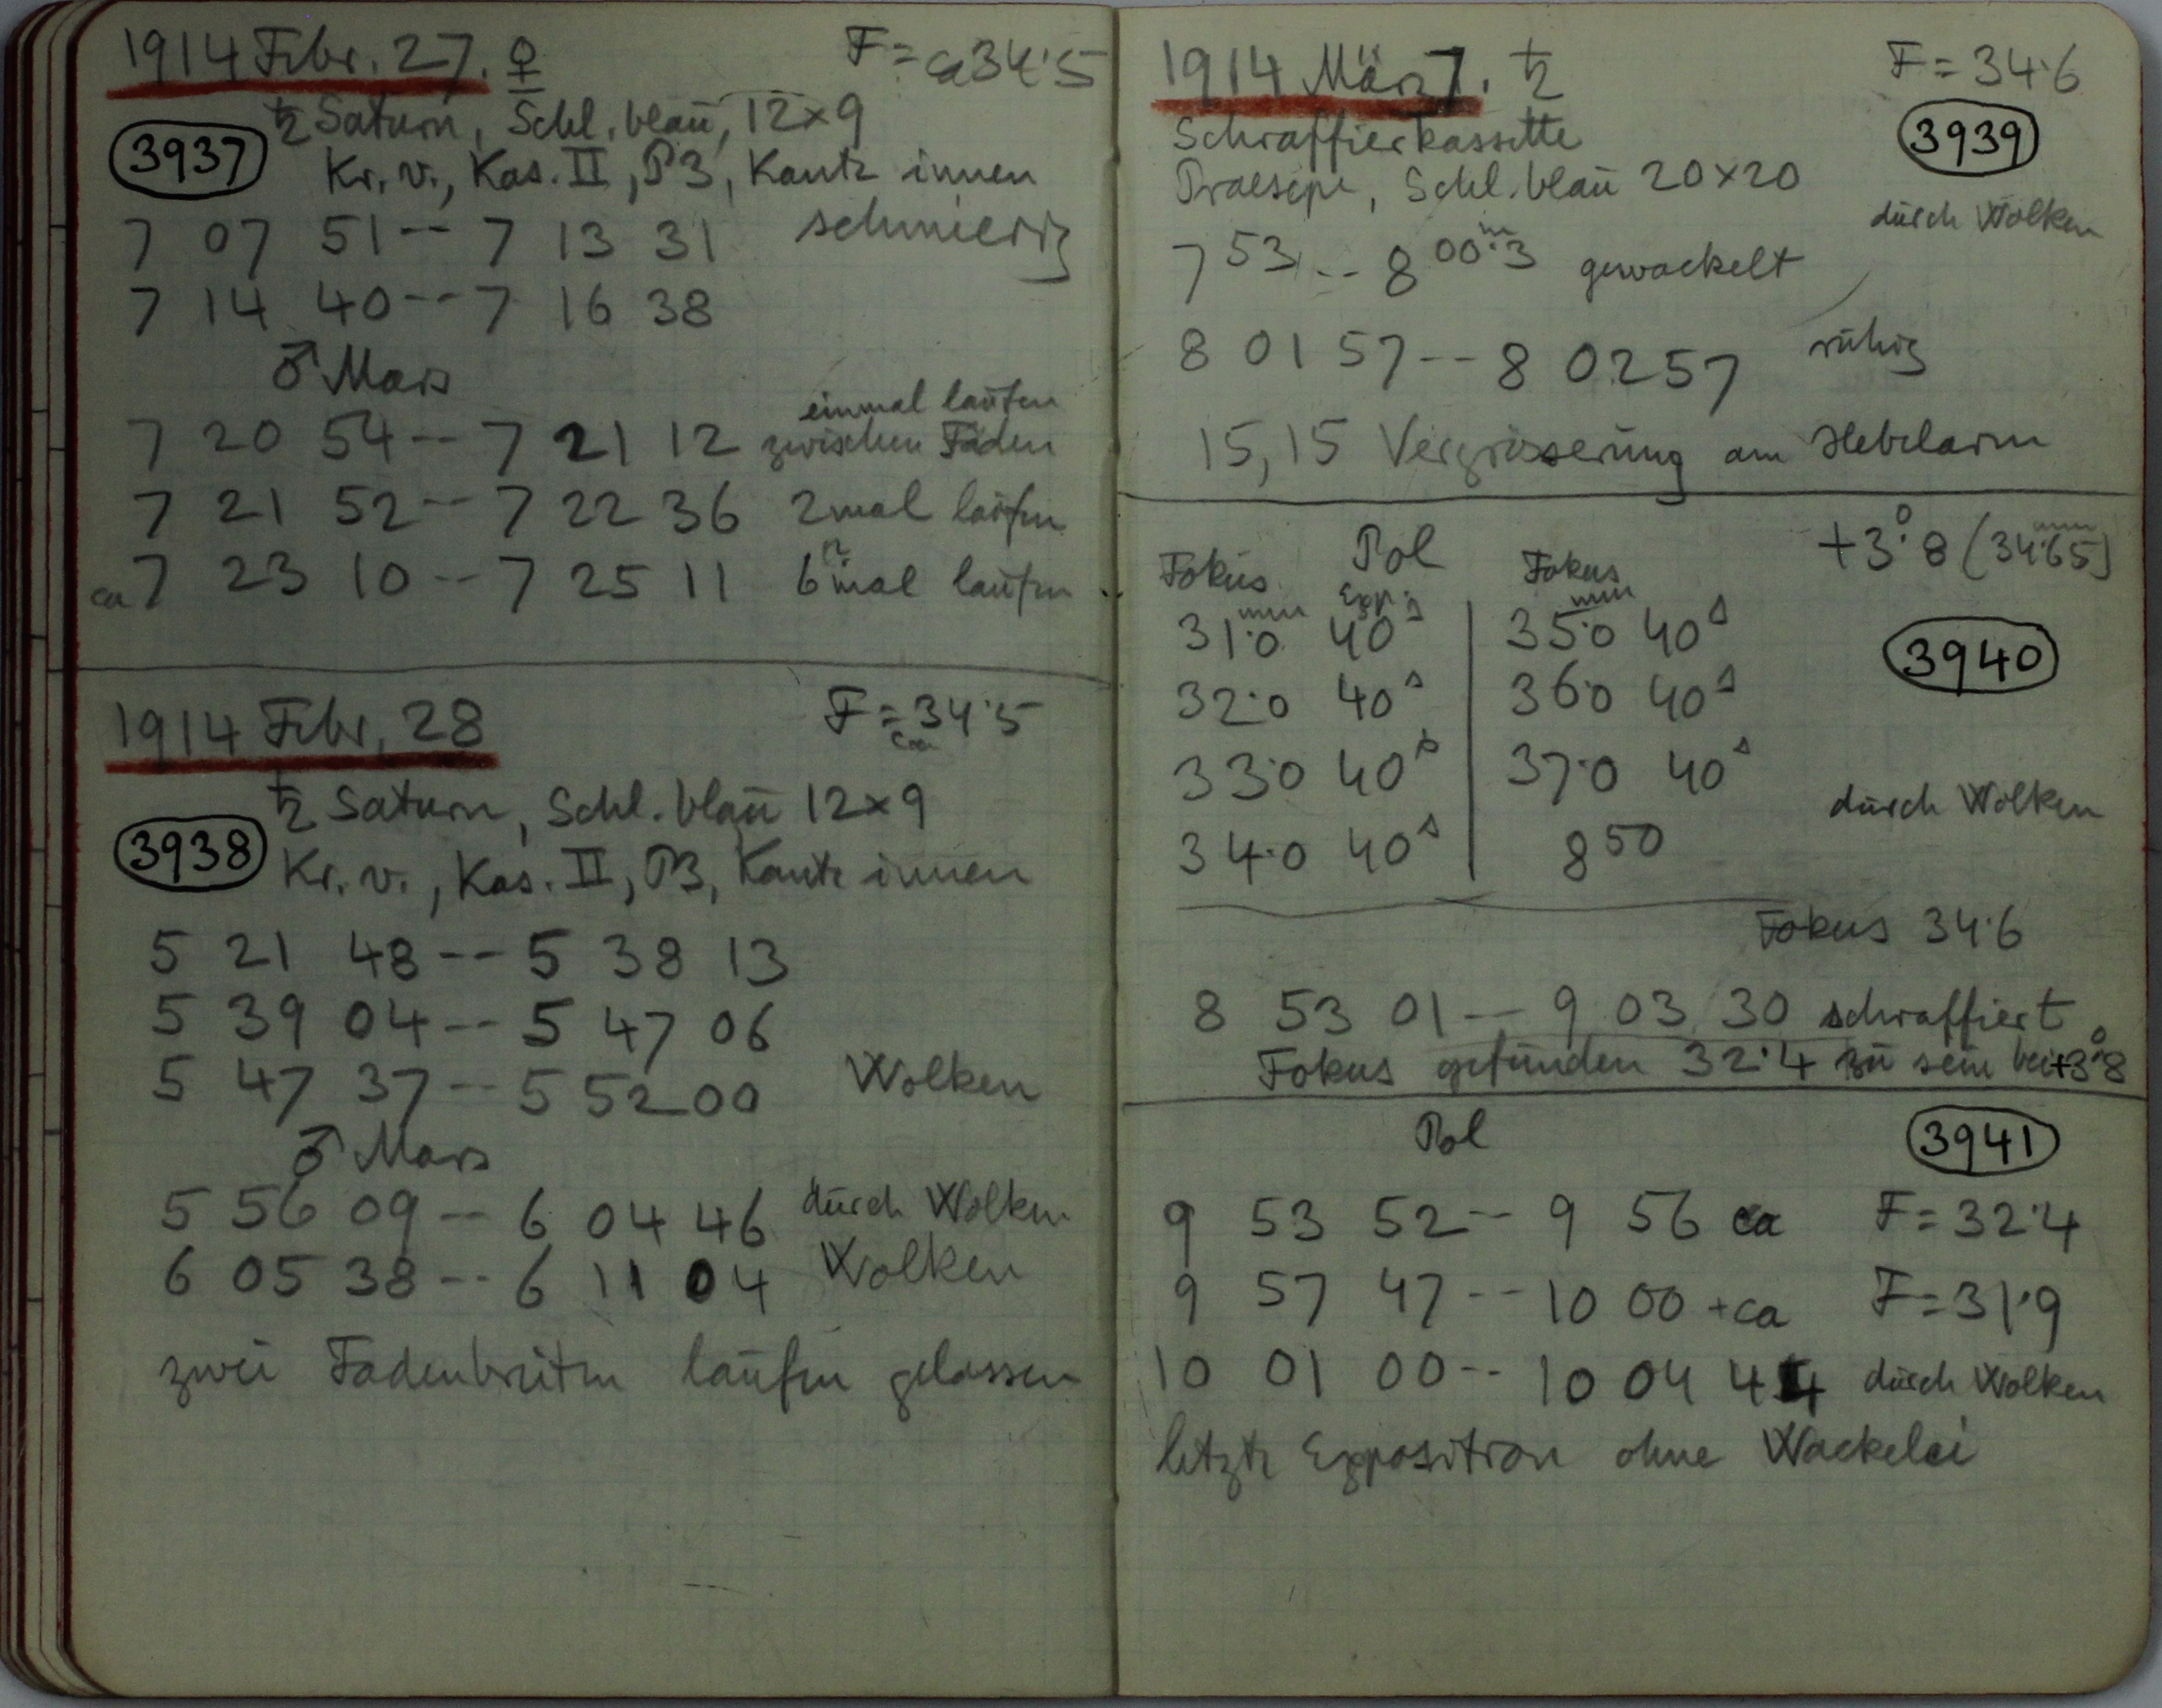 1914 Febr. 27. ♀ F = ca 34.5
♄ Saturn, Schl. blau, 12×9
3937 Kr. v., Kas. II, P3, Kante innen
7 07 51 -- 7 13 31 schmierig
7 14 40 -- 7 16 38
♂ Mars
einmal laufen
7 20 54 -- 7 21 12 zwischen Fäden
7 21 52 -- 7 22 36 2mal laufen
ca 7 23 10 -- 7 25 11 6 mal laufen
1914 Febr. 28 F = ca 34.5
♄ Saturn, Schl. blau 12×9
3938 Kr. v., Kas. II, P3, Kante innen
5 21 48 -- 5 38 13
5 39 04 -- 5 47 06
5 47 37 -- 5 52 00 Wolken
♂ Mars
5 56 09 -- 6 04 46 durch Wolken
6 05 38 -- 6 11 04 Wolken
zwei Fadenbreiten laufen gelassen
1914 März 7. ♄ F = 34.6
Schraffierkassette 3939
Praesepe, Schl. blau 20×20
durch Wolken
7 53 -- 8 00.3 m gewackelt
8 01 57 -- 8 02 57 ruhig
15,15 Vergrösserung am Hebelarm
Pol +3°.8 (34.65 mm)
Fokus Exp. Fokus
31.0 mm 40s | 35.0 mm 40s 3940
32.0 40s | 36.0 40s
33.0 40s | 37.0 40s durch Wolken
34.0 40s | 8 50
Fokus 34.6
8 53 01 -- 9 03 30 schraffiert
Fokus gefunden 32.4 zu sein bei +3°.8
Pol 3941
9 53 52 -- 9 56 ca F = 32.4
9 57 47 -- 10 00 + ca F = 31.9
10 01 00 -- 10 04 44 durch Wolken
letzte Exposition ohne Wackelei